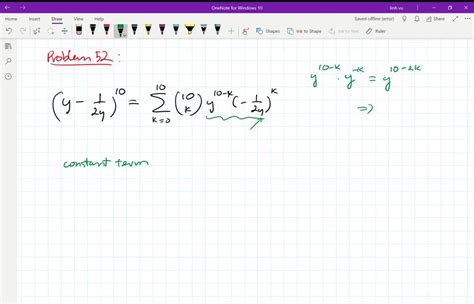 OneNote for Windows 10
linh vu
Home Insert Draw View Help
Saved offline (error)
Share
Ink to Shape
Ink to Text
Math
Problem 52:
(y - 1/2y)^10 = Σ_{k=0}^{10} (10 k) y^{10-k} (-1/2y)^k
y^{10-k} · y^{-k} = y^{10-2k}
⇒
constant term